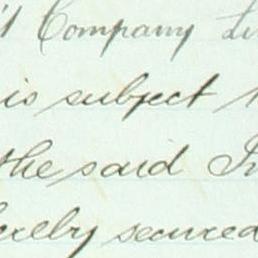 Company
is subject
the said
hereby secured